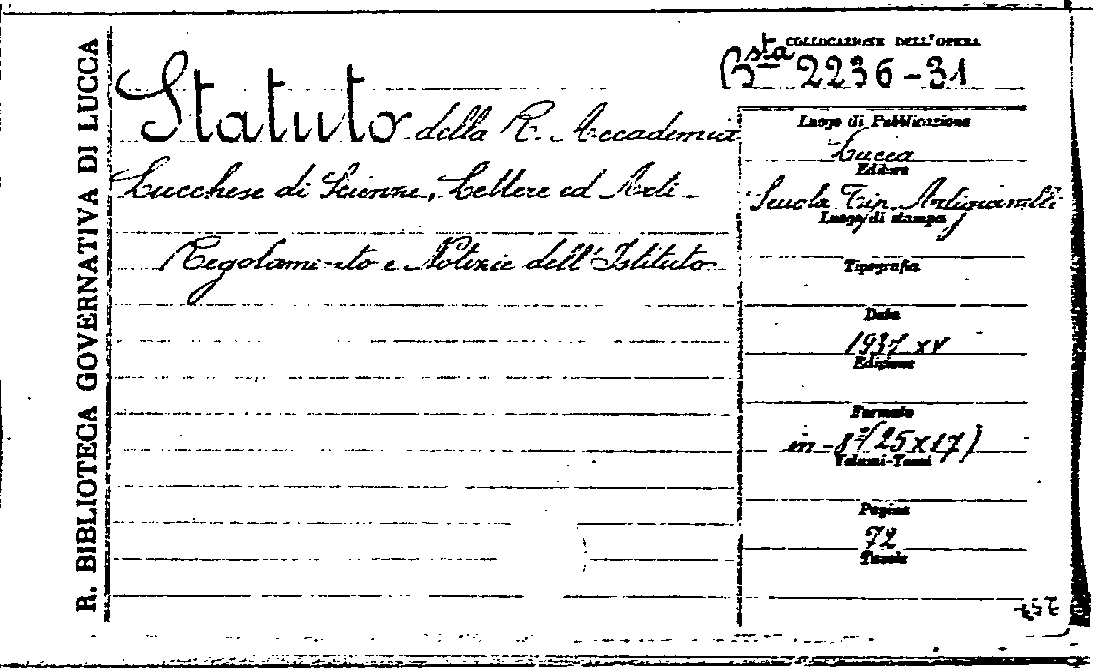 R. BIBLIOTECA GOVERNATIVA DI LUCCA
COLLOCAZIONE DELL'OPERA
Bsta 2236-31
Statuto della R. Accademia
Lucchese di Scienze, Lettere ed Arti -
Regolamento e Notizie dell'Istituto
Luogo di Pubblicazione
Lucca
Editore
Scuola Tip. Artigianelli
Luogo di stampa
Tipografia
Data
1937 XV
Edizione
Formato
in-8° (25x17)
Volumi-Tomi
Pagine
72
Tavole